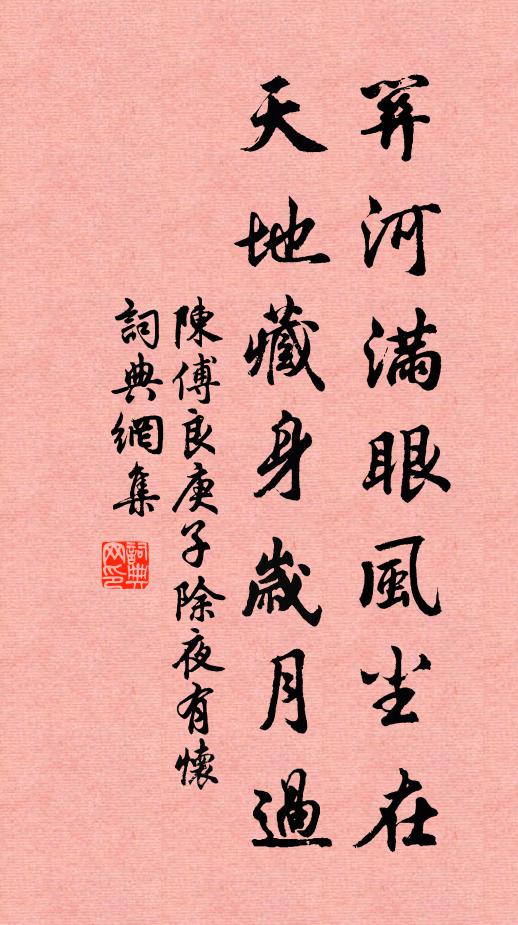 關河滿眼風尘在
天地藏身嵗月過
陳傅良庚子除夜有懷
詞典網集
詞典
网印